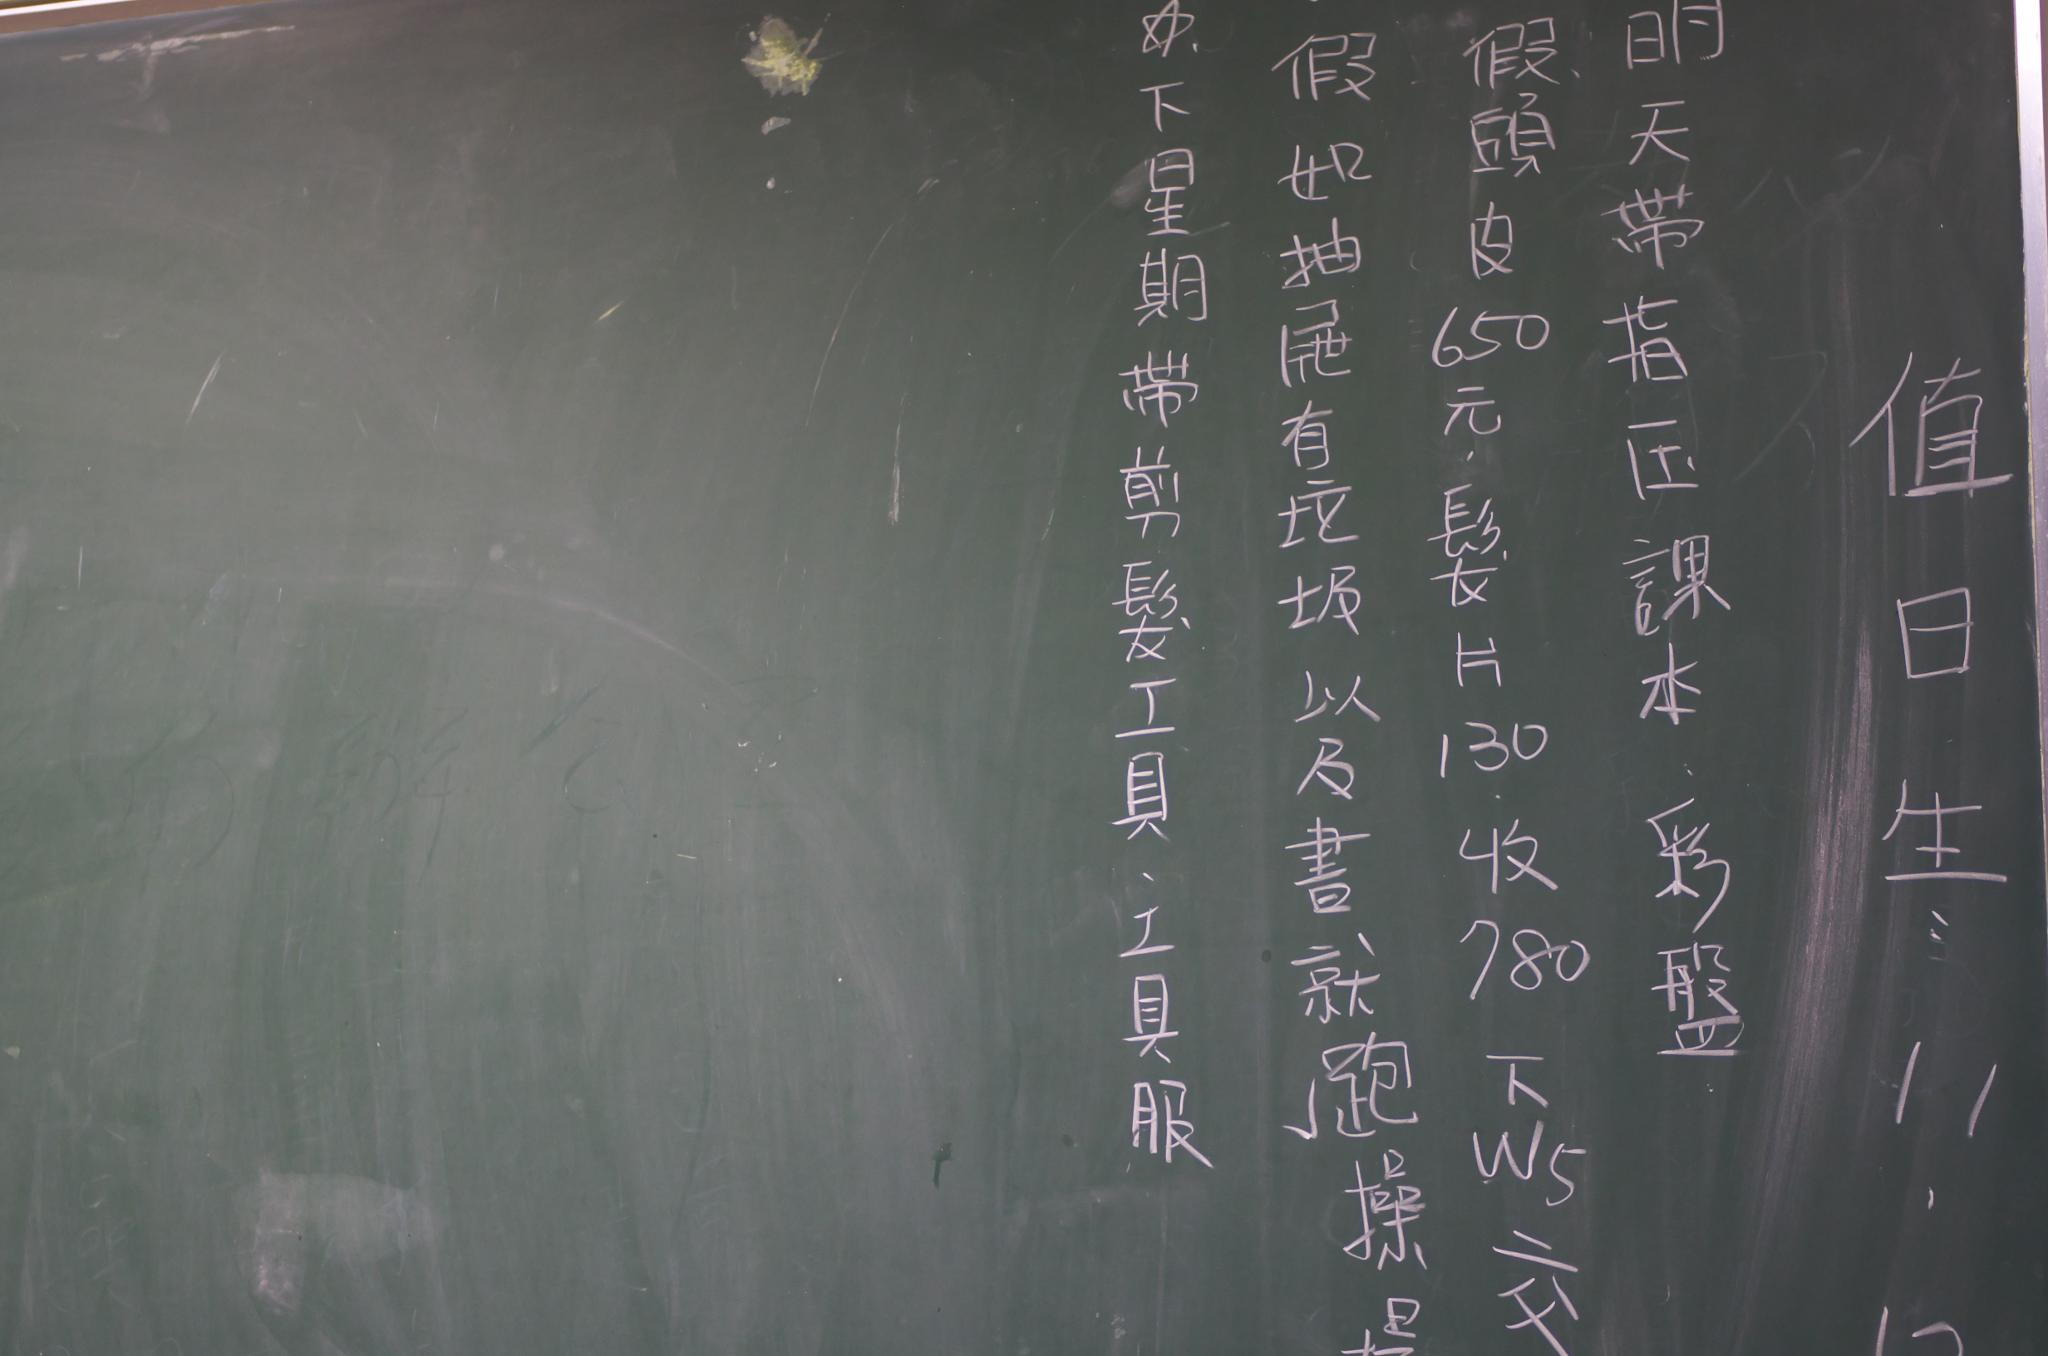 值日生: 11.
明天帶指压課本.彩盤
假頭皮650元.髮片130.收780 下W5交
假如抽屜有垃圾以及書就跑操場
下星期帶剪髮工具.工具服